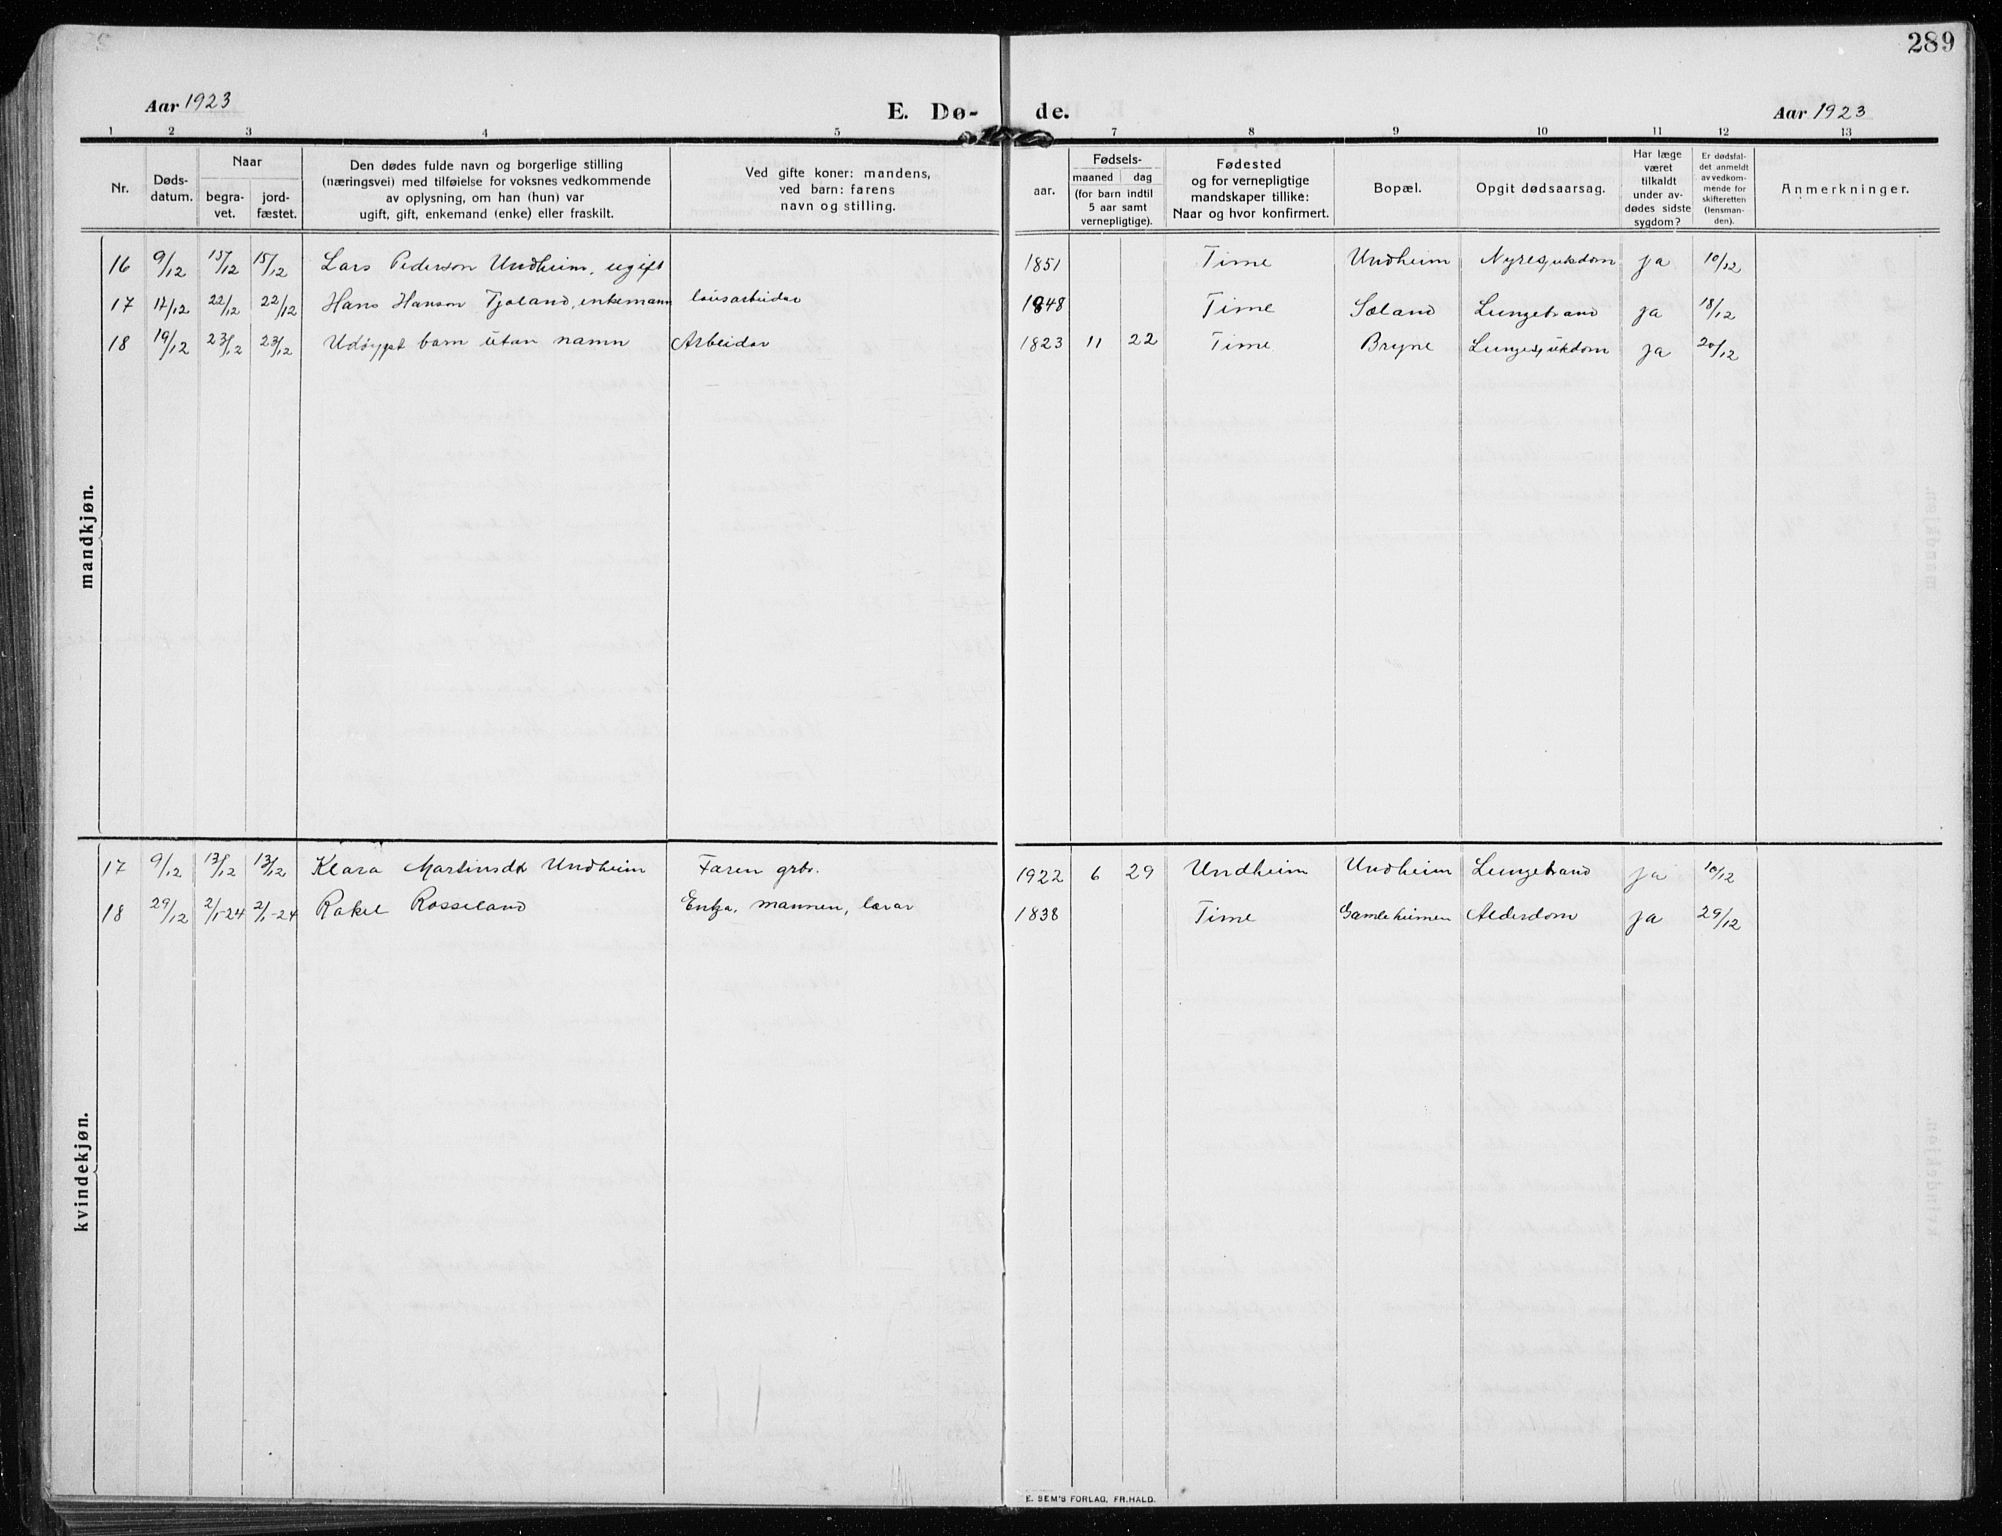 289
Aar 1923
E. Dø-
de.
Aar 1923
1 2 3 4 5 7 8 9 10 11 12 13
Nr.
Døds-
datum.
Naar
begra-
vet.
jord-
fæstet.
Den dødes fulde navn og borgerlige stilling
(næringsvei) med tilføielse for voksnes vedkommende
av oplysning, om han (hun) var
ugift, gift, enkemand (enke) eller fraskilt.
Ved gifte koner: mandens,
ved barn: farens
navn og stilling.
Fødsels-
aar.
maaned dag
(for barn indtil
5 aar samt
vernepligtige).
Fødested
og for vernepligtige
mandskaper tillike:
Naar og hvor konfirmert.
Bopæl.
Opgit dødsaarsag.
Har læge
været
tilkaldt
under av-
dødes sidste
sygdom?
Er dødsfal-
det anmeldt
av vedkom-
mende for
skifteretten
(lensman-
den).
Anmerkninger.
mandkjøn.
16 9/12 15/12 15/12 Lars Pederson Undheim, ugift 1851 Time Undheim Nyresjukdom ja 10/12
17 17/12 22/12 22/12 Hans Hanson Tjoland, enkemann lausarbeidar 1848 Time Sæland Lungebrand ja 18/12
18 19/12 23/12 23/12 Udøypt barn utan namn Arbeidar 1823 11 22 Time Bryne Lungesjukdom ja 20/12
kvindekjøn.
17 9/12 13/12 13/12 Klara Martinsdtr Undheim Faren grbr. 1922 6 29 Undheim Undheim Lungebrand ja 10/12
18 29/12 2/1-24 2/1-24 Rakel Rosseland Enkja, mannen, lærar 1838 Time Gamleheimen Alderdom ja 29/12
E. SEM'S FORLAG, FR.HALD.